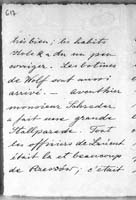 618.
très bien; les habits
Kolok a du un peu
corriger. Les bottines
de Wolf sont aussi
arrivé. — Avanthier
monsieur Schrader
a fait une grande
Stallparade. Tout
les officiers de Zurient
était là et beaucoup
de Rzeszów; c'était